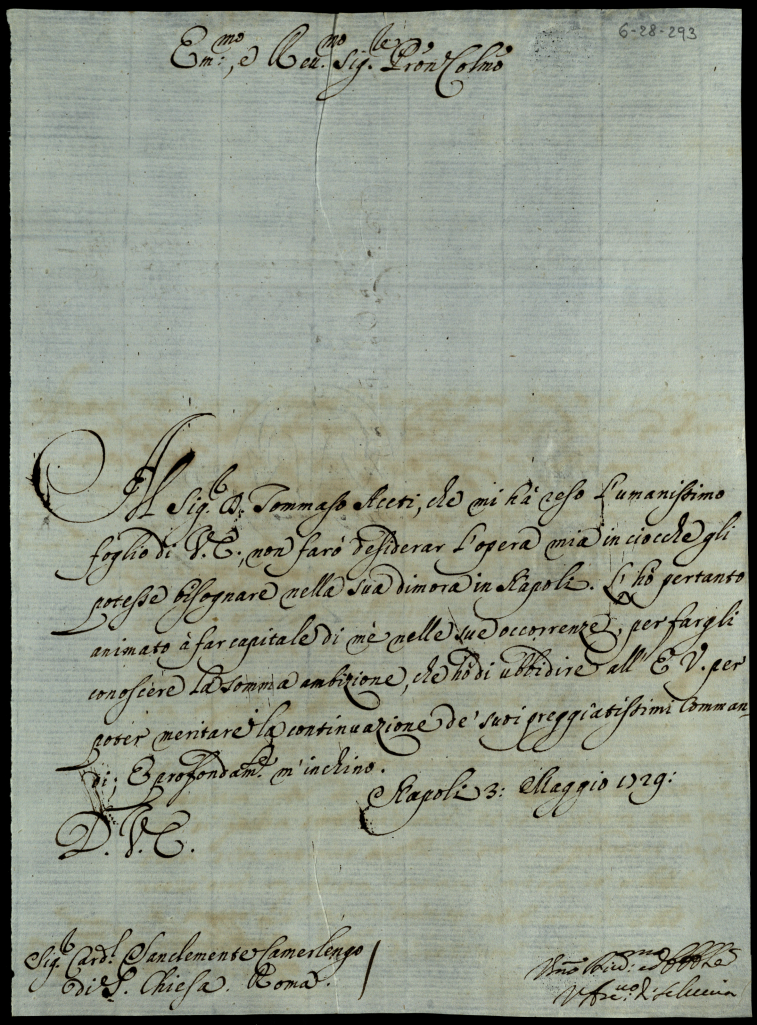 6-28-293
Em:mo, e Reu.mo Sig.re Pron Colmo
Al Sig.r D. Tommaso Aceti, che mi hà reso l'umanissimo
foglio di V.E., non farò desiderar l'opera mia in ciocche gli
potesse bisognare nella sua dimora in Napoli. L'hò pertanto
animato à far capitale di mè nelle sue occorrenze, per fargli
conoscere la somma ambizione, che hò di ubbidire all' E V. per
poter meritare la continuazione de' suoi preggiatissimi Comman-
di; E profondam.te m'inchino.
Napoli 3: Maggio 1729:
D. V. E.
Sig.r Card.l Sanclemente Camerlengo
di S. Chiesa. Roma.